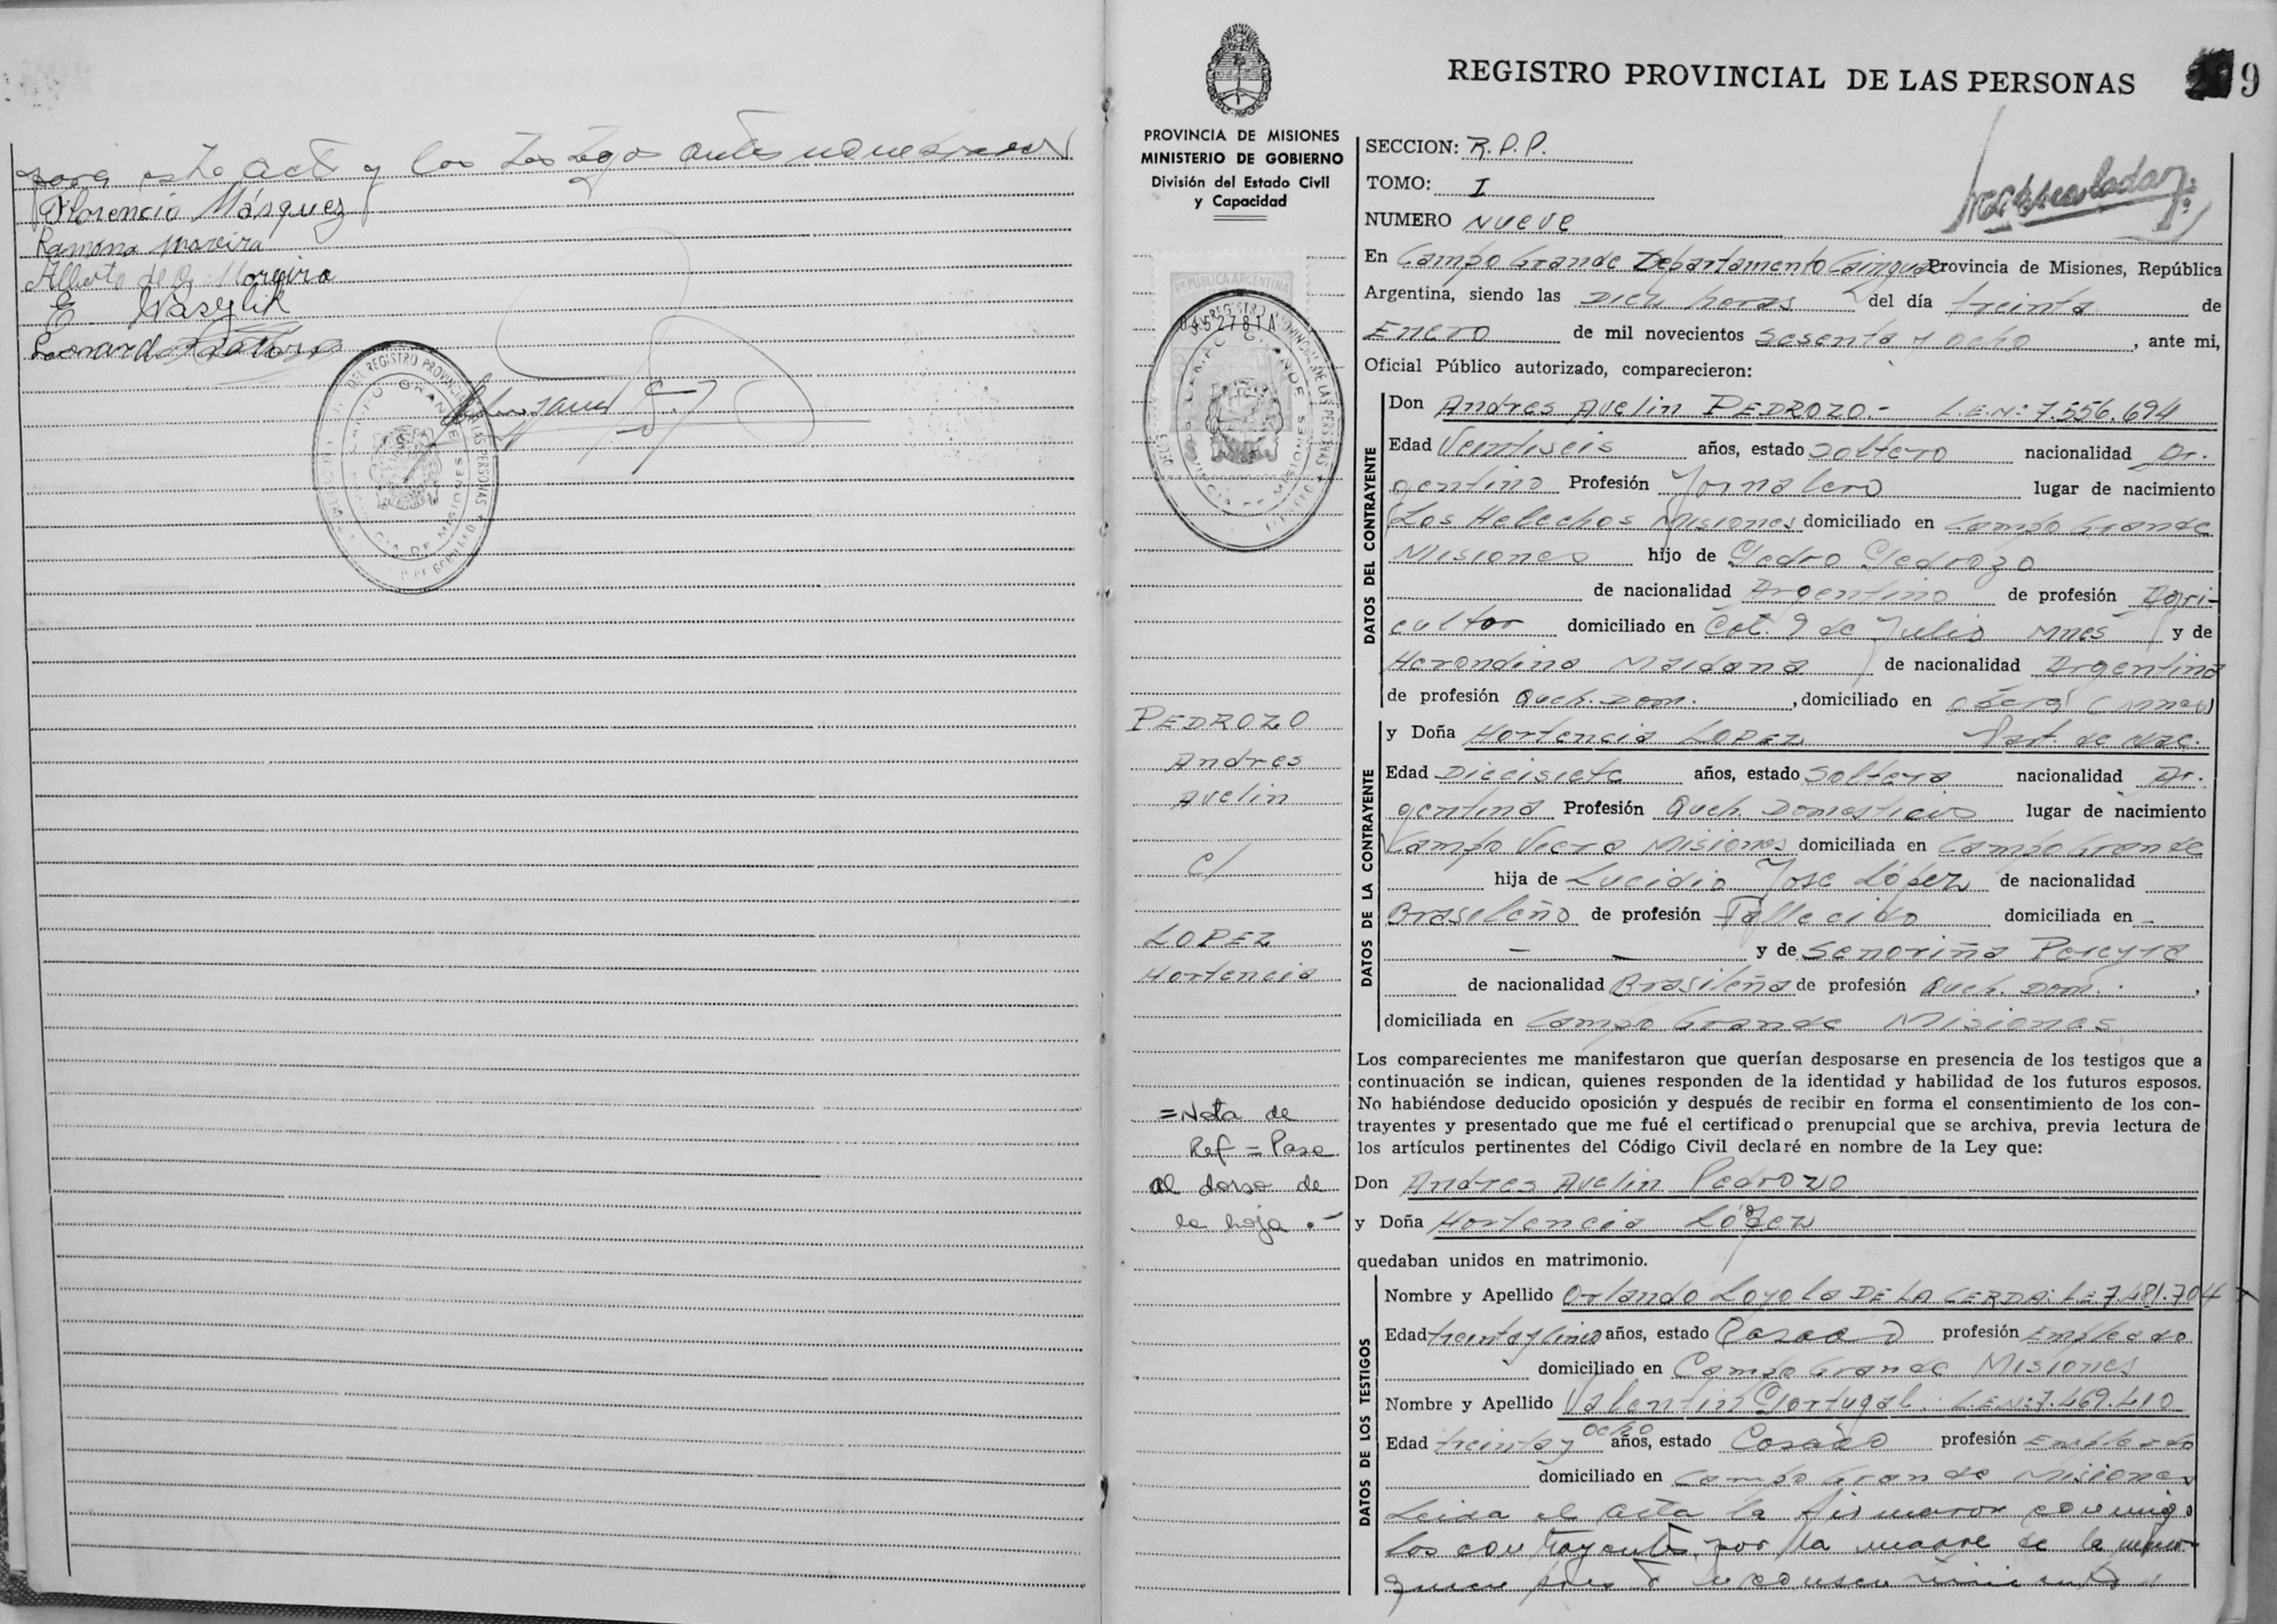 para este acto y los testigos antes nombrados
Florencio Másquez
Ramona Moreira
Alberto de O. Moreira
E. Wasylik
Leonardo
DEL REGISTRO PROVINCIAL DE LAS PERSONAS
CAMPO GRANDE
PROVINCIA DE MISIONES
REGISTRO PROVINCIAL DE LAS PERSONAS
9
PROVINCIA DE MISIONES
MINISTERIO DE GOBIERNO
División del Estado Civil
y Capacidad
REPUBLICA ARGENTINA
CAMPO GRANDE
PROVINCIA DE MISIONES
PEDROZO
Andres
Avelin
c/
LOPEZ
Hortencia
=Nota de
Ref = Pase
al dorso de
la hoja .-
SECCION: R.P.P.
TOMO: I
NUMERO NUEVE
En Campo Grande Departamento Cainguas Provincia de Misiones, República
Argentina, siendo las Diez horas del día treinta de
Enero de mil novecientos sesenta y ocho, ante mi,
Oficial Público autorizado, comparecieron:
DATOS DEL CONTRAYENTE
Don Andres Avelin PEDROZO.- L.E.Nº: 7.556.694
Edad Veintiseis años, estado Soltero nacionalidad Ar-
gentino Profesión Jornalero lugar de nacimiento
Los Helechos Misiones domiciliado en Campo Grande
Misiones hijo de Pedro Pedrozo
de nacionalidad Argentino de profesión Agri-
cultor domiciliado en Col. 9 de Julio Mnes y de
Herondina Maidana de nacionalidad Argentina
de profesión Queh. Dom. , domiciliado en Oberá (Mnes)
DATOS DE LA CONTRAYENTE
y Doña Hortencia LOPEZ Part. de Nac.
Edad Diecisiete años, estado Soltera nacionalidad Ar-
gentina Profesión Queh. Domesticos lugar de nacimiento
Campo Viera Misiones domiciliada en Campo Grande
hija de Lucidio Jose López de nacionalidad
Brasileño de profesión Fallecido domiciliada en -
- - y de Senoriña Pereyra
de nacionalidad Brasileña de profesión Queh. Dom. ,
domiciliada en Campo Grande Misiones
Los comparecientes me manifestaron que querían desposarse en presencia de los testigos que a
continuación se indican, quienes responden de la identidad y habilidad de los futuros esposos.
No habiéndose deducido oposición y después de recibir en forma el consentimiento de los con-
trayentes y presentado que me fué el certificado prenupcial que se archiva, previa lectura de
los artículos pertinentes del Código Civil declaré en nombre de la Ley que:
Don Andres Avelin Pedrozo
y Doña Hortencia López
quedaban unidos en matrimonio.
DATOS DE LOS TESTIGOS
Nombre y Apellido Orlando Loyola DE LA CERDA: L.E 7.481.704
Edad treinta y cinco años, estado Casado profesión Empleado
domiciliado en Campo Grande Misiones
Nombre y Apellido Valentin Portugal. L.E.Nº: 7.469.410
Edad treinta y ocho años, estado Casado profesión Empleado
domiciliado en Campo Grande Misiones
Leida el acta la firmaron conmigo
los contrayentes, por la madre de la menor
quien presto su consentimiento